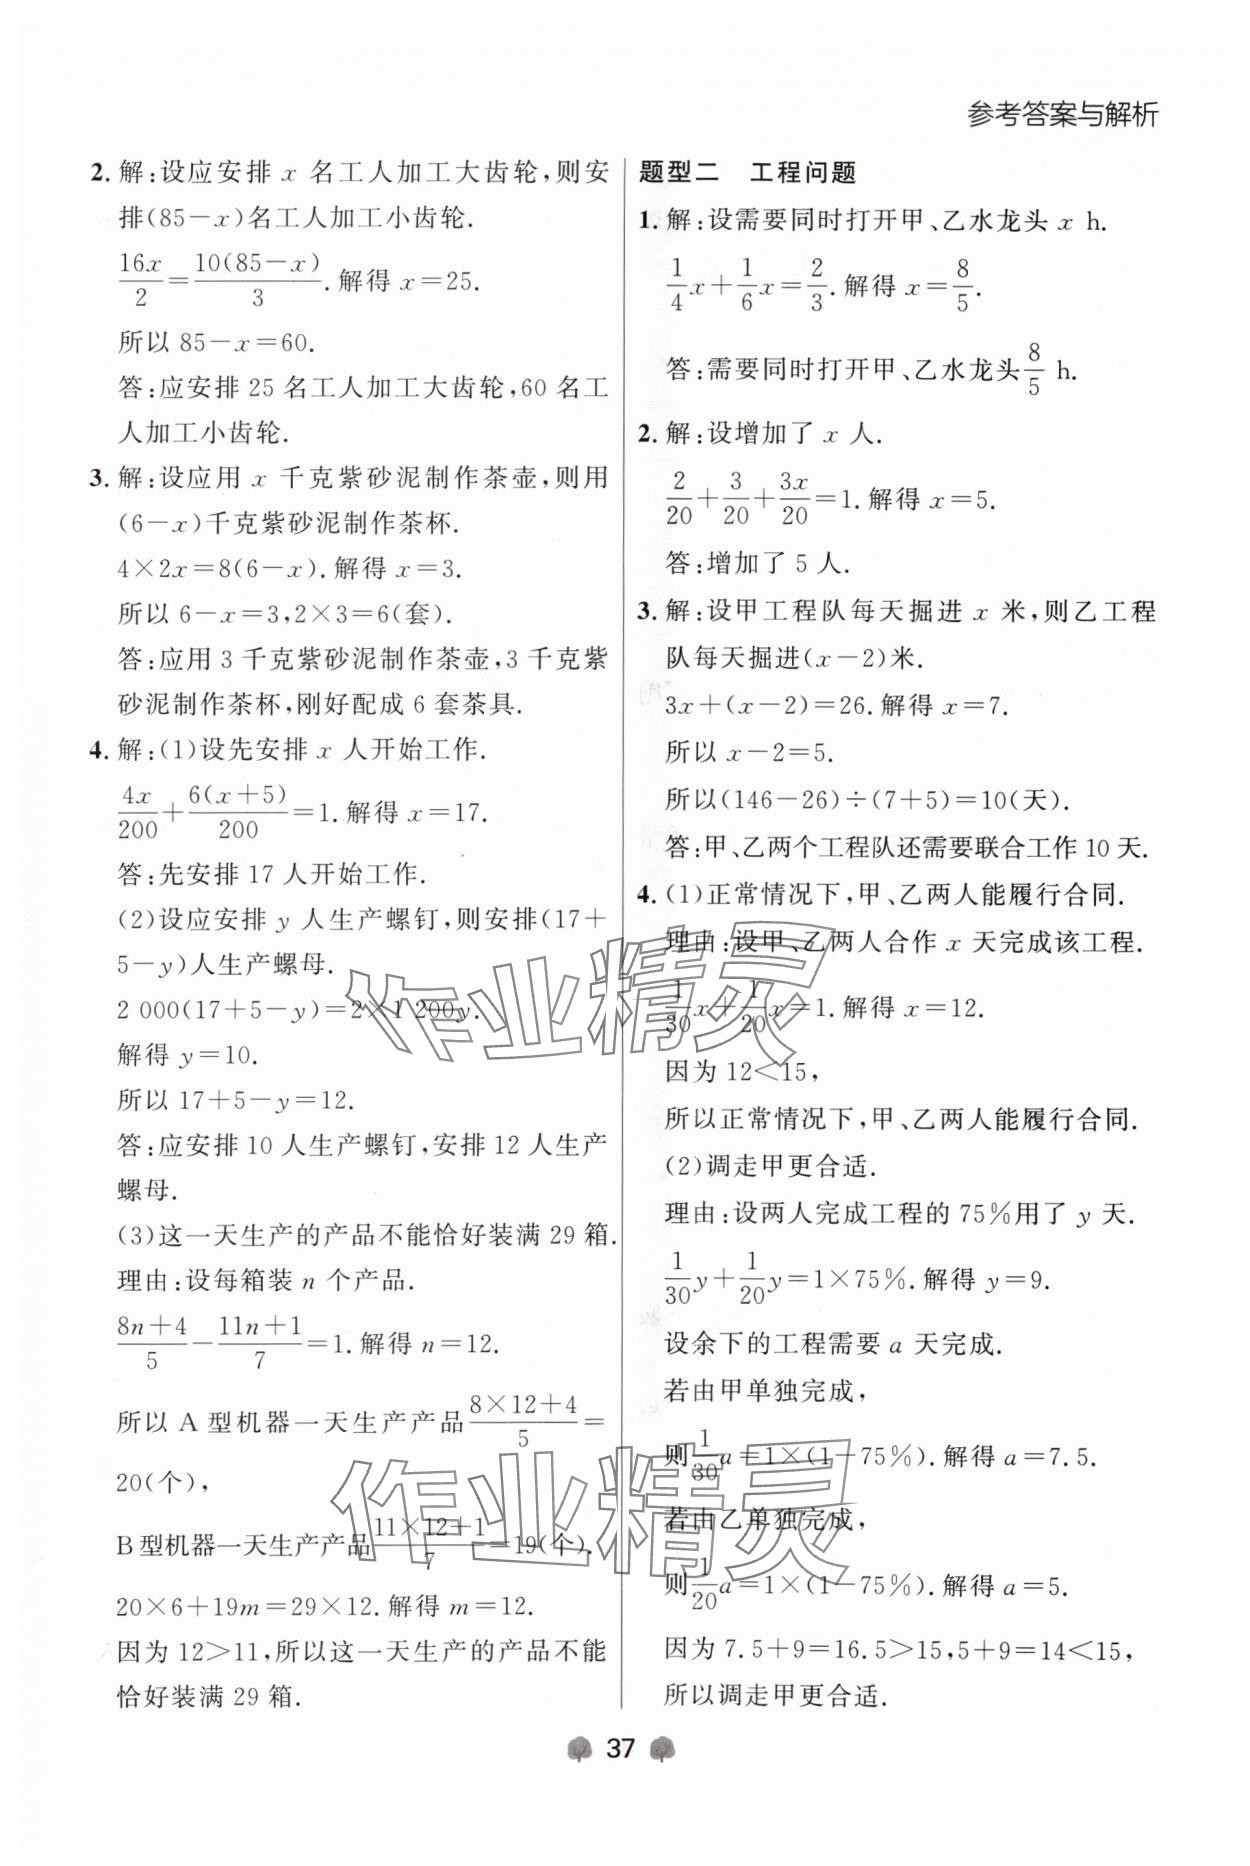 参考答案与解析
2. 解:设应安排 x 名工人加工大齿轮,则安
排(85－x)名工人加工小齿轮.
16x/2＝10(85－x)/3.解得 x＝25.
所以 85－x＝60.
答:应安排 25 名工人加工大齿轮,60 名工
人加工小齿轮.
3. 解:设应用 x 千克紫砂泥制作茶壶,则用
(6－x)千克紫砂泥制作茶杯.
4×2x＝8(6－x).解得 x＝3.
所以 6－x＝3,2×3＝6(套).
答:应用 3 千克紫砂泥制作茶壶,3 千克紫
砂泥制作茶杯,刚好配成 6 套茶具.
4. 解:(1)设先安排 x 人开始工作.
4x/200＋6(x＋5)/200＝1.解得 x＝17.
答:先安排 17 人开始工作.
(2)设应安排 y 人生产螺钉,则安排(17＋
5－y)人生产螺母.
2 000(17＋5－y)＝2×1 200y.
解得 y＝10.
所以 17＋5－y＝12.
答:应安排 10 人生产螺钉,安排 12 人生产
螺母.
(3)这一天生产的产品不能恰好装满 29 箱.
理由:设每箱装 n 个产品.
8n＋4/5－11n＋1/7＝1.解得 n＝12.
所以 A 型机器一天生产产品8×12＋4/5＝
20(个),
B 型机器一天生产产品11×12＋1/7＝19(个).
20×6＋19m＝29×12.解得 m＝12.
因为 12＞11,所以这一天生产的产品不能
恰好装满 29 箱.
题型二 工程问题
1. 解:设需要同时打开甲、乙水龙头 x h.
1/4x＋1/6x＝2/3.解得 x＝8/5.
答:需要同时打开甲、乙水龙头8/5 h.
2. 解:设增加了 x 人.
2/20＋3/20＋3x/20＝1.解得 x＝5.
答:增加了 5 人.
3. 解:设甲工程队每天掘进 x 米,则乙工程
队每天掘进(x－2)米.
3x＋(x－2)＝26.解得 x＝7.
所以 x－2＝5.
所以(146－26)÷(7＋5)＝10(天).
答:甲、乙两个工程队还需要联合工作 10 天.
4. (1)正常情况下,甲、乙两人能履行合同.
理由:设甲、乙两人合作 x 天完成该工程.
1/30x＋1/20x＝1.解得 x＝12.
因为 12＜15,
所以正常情况下,甲、乙两人能履行合同.
(2)调走甲更合适.
理由:设两人完成工程的 75%用了 y 天.
1/30y＋1/20y＝1×75%.解得 y＝9.
设余下的工程需要 a 天完成.
若由甲单独完成,
则1/30a＝1×(1－75%).解得 a＝7.5.
若由乙单独完成,
则1/20a＝1×(1－75%).解得 a＝5.
因为 7.5＋9＝16.5＞15,5＋9＝14＜15,
所以调走甲更合适.
作业精灵
作业精灵
37